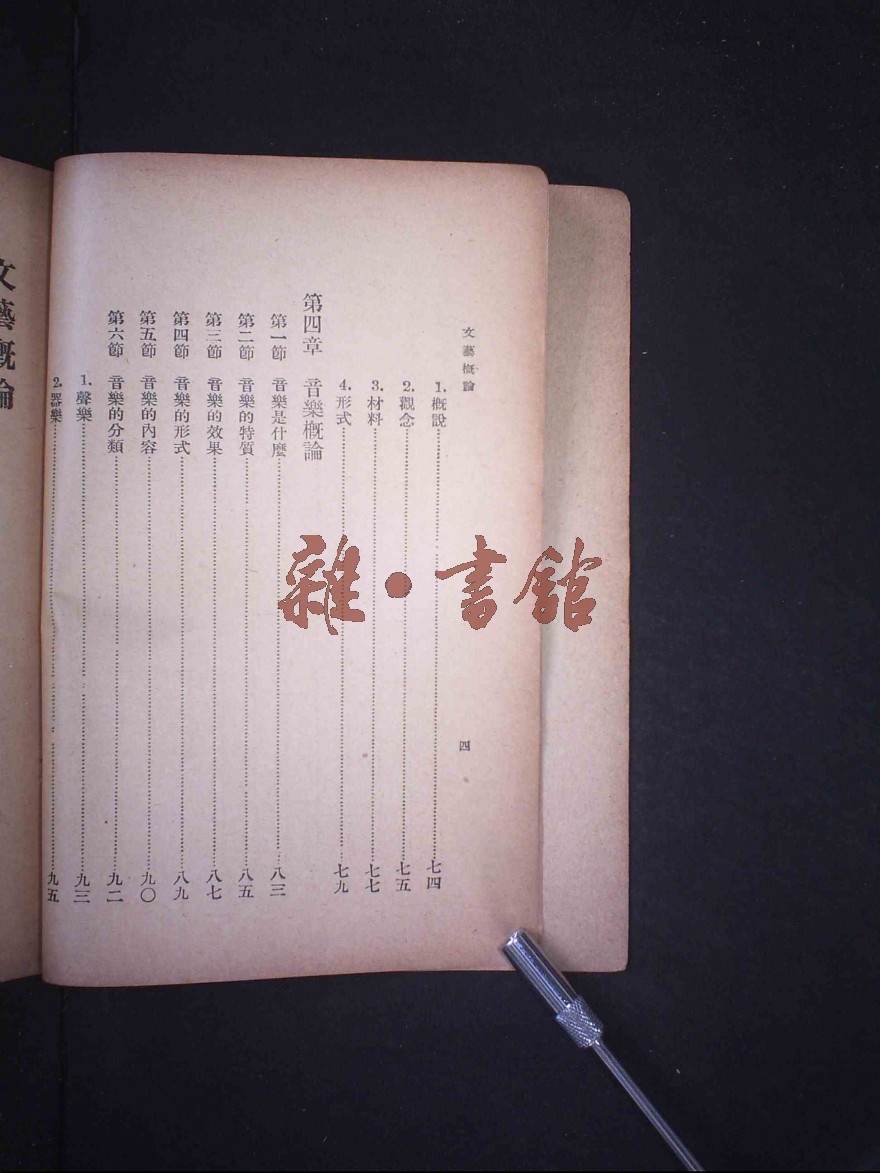 文藝概論
四
1. 概說……七四
2. 觀念……七五
3. 材料……七七
4. 形式……七九
第四章 音樂概論
第一節 音樂是什麼……八三
第二節 音樂的特質……八五
第三節 音樂的效果……八七
第四節 音樂的形式……八九
第五節 音樂的內容……九〇
第六節 音樂的分類……九二
1. 聲樂……九三
2. 器樂……九五
文藝概論
雜·書館